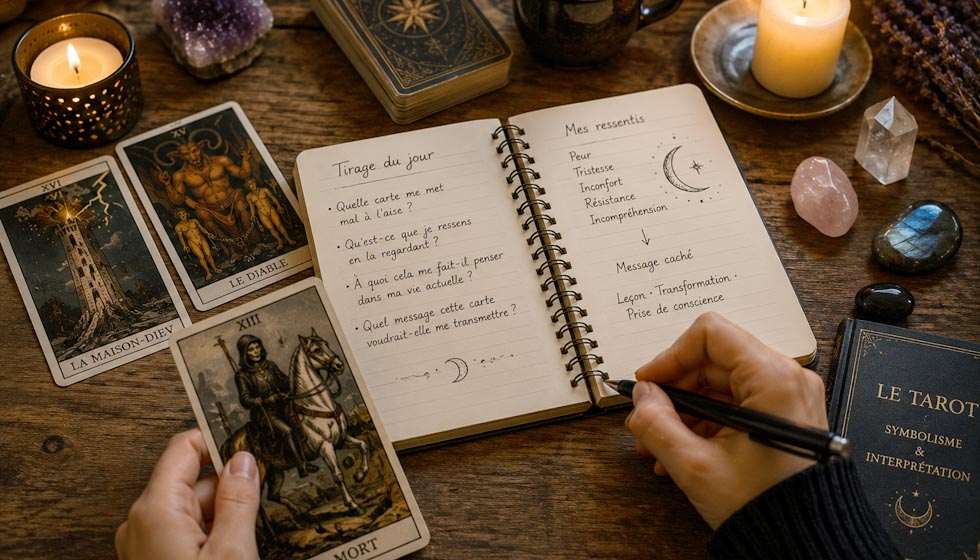 XVI
LA MAISON-DIEV
XV
LE DIABLE
XIII
MORT
Tirage du jour
• Quelle carte me met
mal à l'aise ?
• Qu'est-ce que je ressens
en la regardant ?
• À quoi cela me fait-il penser
dans ma vie actuelle ?
• Quel message cette carte
voudrait-elle me transmettre ?
Mes ressentis
Peur
Tristesse
Inconfort
Résistance
Incompréhension
↓
Message caché
Leçon · Transformation ·
Prise de conscience
LE TAROT
SYMBOLISME
&
INTERPRÉTATION